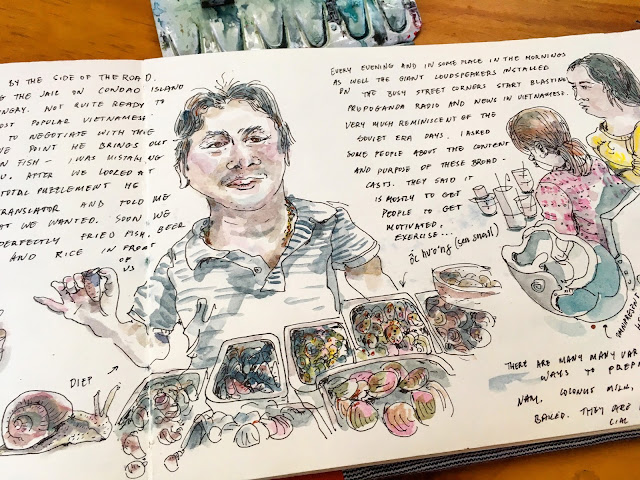 BY THE SIDE OF THE ROAD.
G THE JAIL ON CONDAO ISLAND
NGRY. NOT QUITE READY TO
OST POPULAR VIETNAMESE
TO NEGOTIATE WITH THE
E POINT HE BRINGS OUT
N FISH – I WAS VISITING
AFTER WE LOOKED AT
TOTAL PUZZLEMENT HE
TRANSLATOR AND TOLD ME
AT WE WANTED. SOON WE
PERFECTLY FRIED FISH, BEER
AND RICE IN FRONT
OF
US
DIEP
EVERY EVENING AND IN SOME PLACE IN THE MORNINGS
AS WELL THE GIANT LOUDSPEAKERS INSTALLED
ON THE BUSY STREET CORNERS START BLASTING
PROPOGANDA RADIO AND NEWS IN VIETNAMESE.
VERY MUCH REMINISCENT OF THE
SOVIET ERA DAYS. I ASKED
SOME PEOPLE ABOUT THE CONTENT
AND PURPOSE OF THESE BROAD-
CASTS. THEY SAID IT
IS MOSTLY TO GET
PEOPLE TO GET
MOTIVATED,
EXERCISE...
ốc hương (sea snail)
THERE ARE MANY MANY VAR
WAYS TO PREP
NAM, COCONUT MILK,
BAKED. THEY ARE